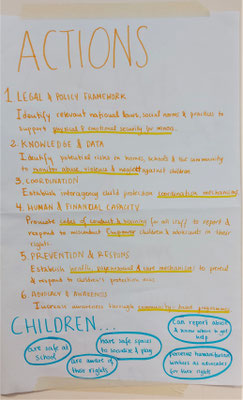 ACTIONS
1. LEGAL & POLICY FRAMEWORK
Identify relevant national laws, social norms & practices to
support physical & emotional security for minors.
2. KNOWLEDGE & DATA
Identify potential risks in homes, schools & the community
to monitor abuse, violence & neglect against children
3. COORDINATION
Establish interagency child protection coordination mechanisms
4. HUMAN & FINANCIAL CAPACITY
Promote codes of conduct & training for all staff to report &
respond to misconduct. Empower children & adolescents in their
rights.
5. PREVENTION & RESPONS
Establish & care mechanisms to prevent
& respond to children's protection
6. ADVOCACY & AWARENESS
Increase awareness through community
CHILDREN...
are safe at
school
are aware of
their rights
have safe spaces
to socialize & play
can report abuse
& know where to get
help
as advocates
for their rights